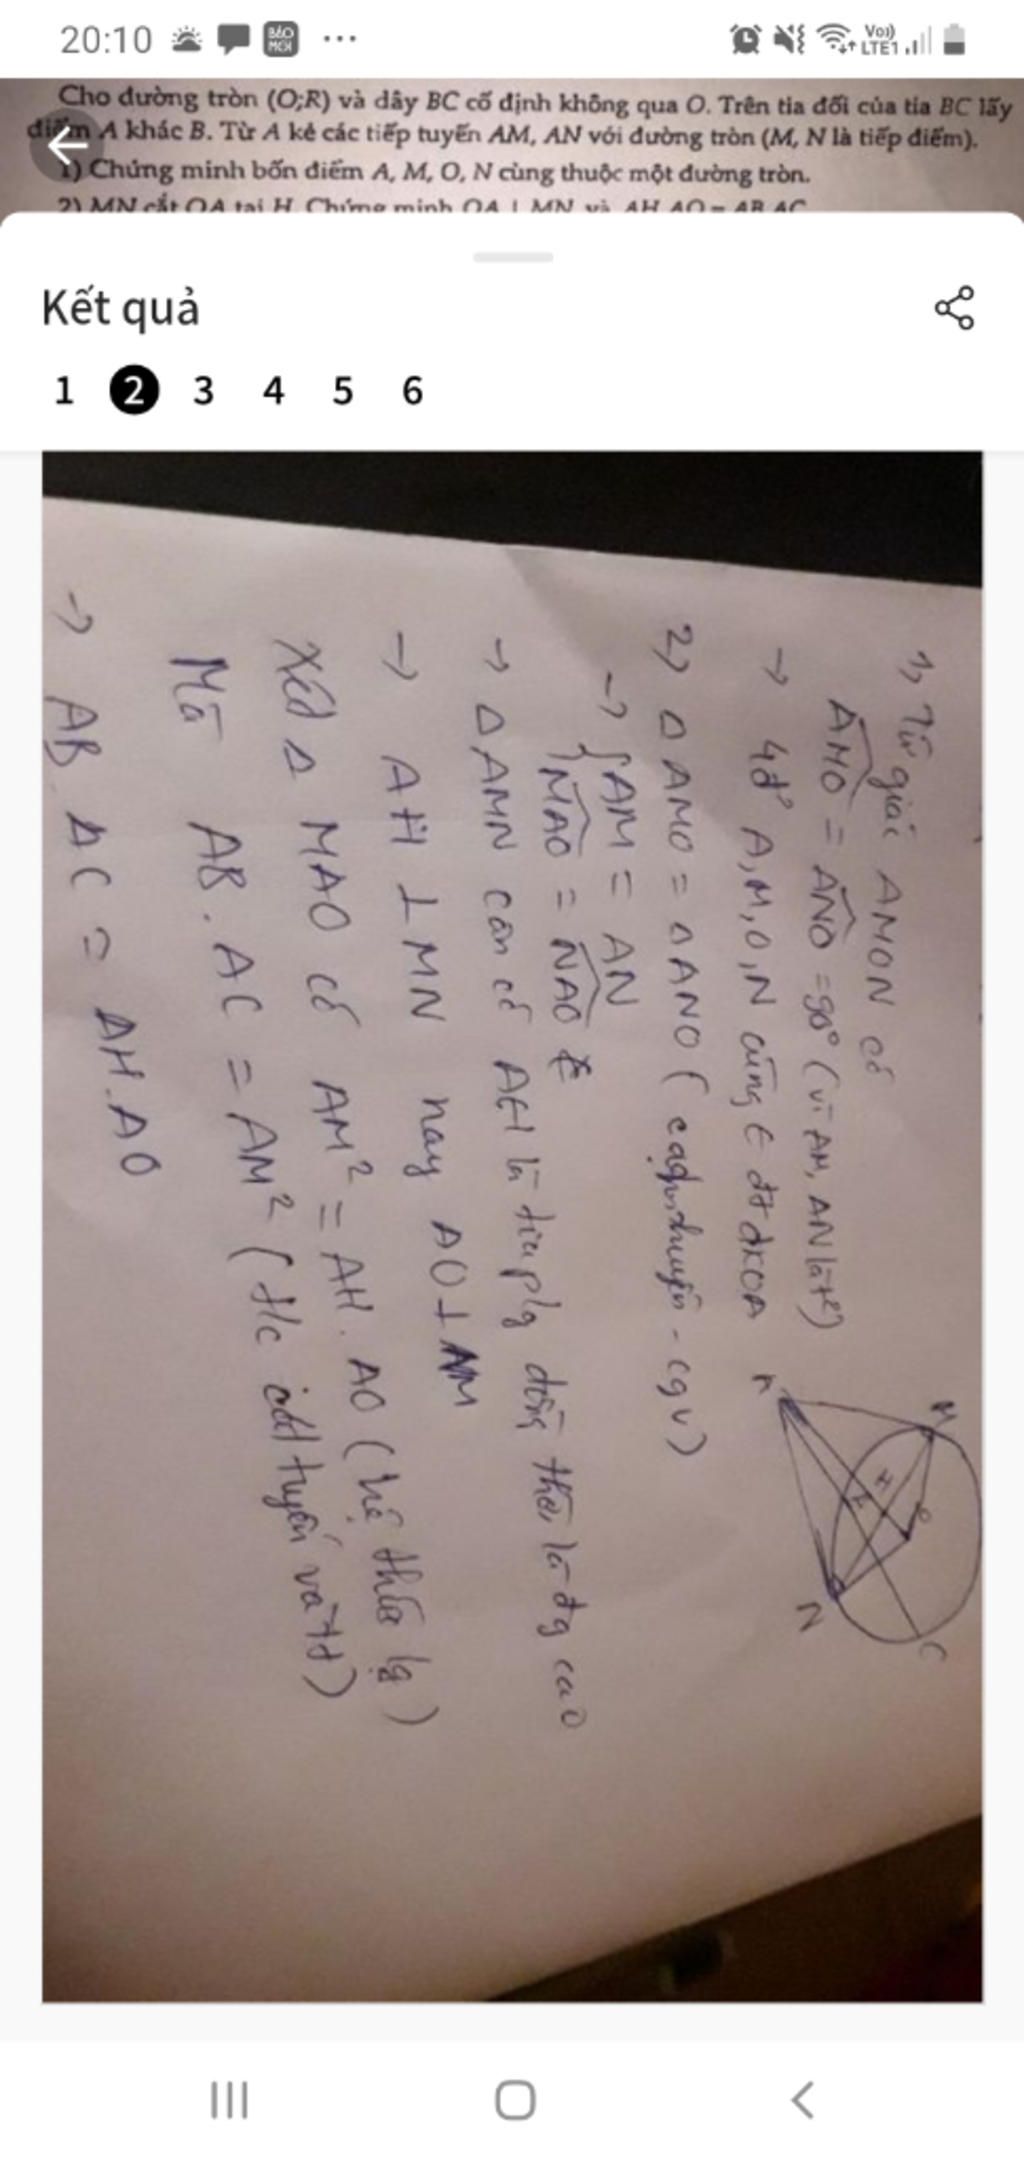 20:10
BÁO MỚI
Vo))
LTE1
Cho đường tròn (O;R) và dây BC cố định không qua O. Trên tia đối của tia BC lấy
điểm A khác B. Từ A kẻ các tiếp tuyến AM, AN với đường tròn (M, N là tiếp điểm).
1) Chứng minh bốn điểm A, M, O, N cùng thuộc một đường tròn.
2) MN cắt OA tại H. Chứng minh OA ⊥ MN và AH.AO = AB.AC
Kết quả
1 2 3 4 5 6
1, Tứ giác AMON có
AMO = ANO = 90° (vì AM, AN là t²)
→ 4đ' A,M,O,N cùng ∈ đt đk OA
2, Δ AMO = Δ ANO ( cạnh huyền - cgv)
→ { AM = AN
MAO = NAO
→ Δ AMN cân có AH là tia p/g đồng thời là đg cao
→ AH ⊥ MN hay AO ⊥ NM
Xét Δ MAO có AM² = AH. AO (hệ thức lg)
Mà AB.AC = AM² (t/c cát tuyến và tt)
→ AB AC = AH.AO
A
M
H
O
N
C